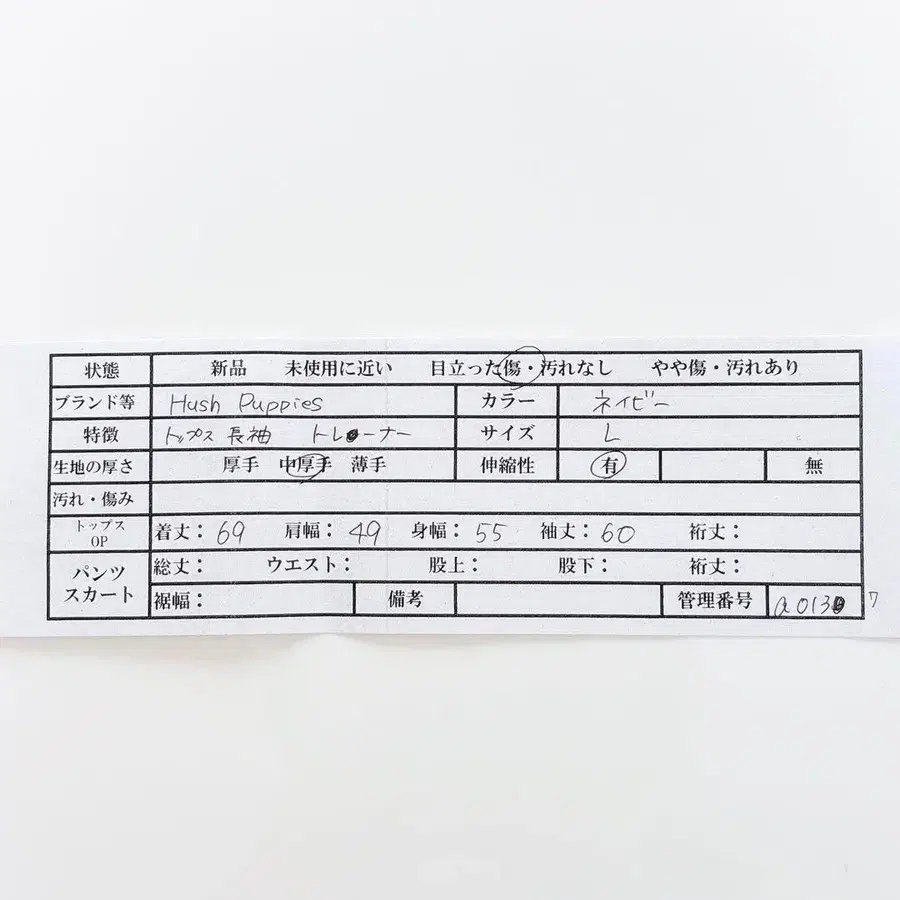 状態 新品 未使用に近い 目立った傷・汚れなし やや傷・汚れあり
ブランド等 Hush Puppies カラー ネイビー
特徴 トップス 長袖 トレーナー サイズ L
生地の厚さ 厚手 中厚手 薄手 伸縮性 有 無
汚れ・傷み
トップス OP 着丈： 69 肩幅： 49 身幅： 55 袖丈： 60 裄丈：
パンツ スカート 総丈： ウエスト： 股上： 股下： 裄丈：
裾幅： 備考 管理番号 a013 7